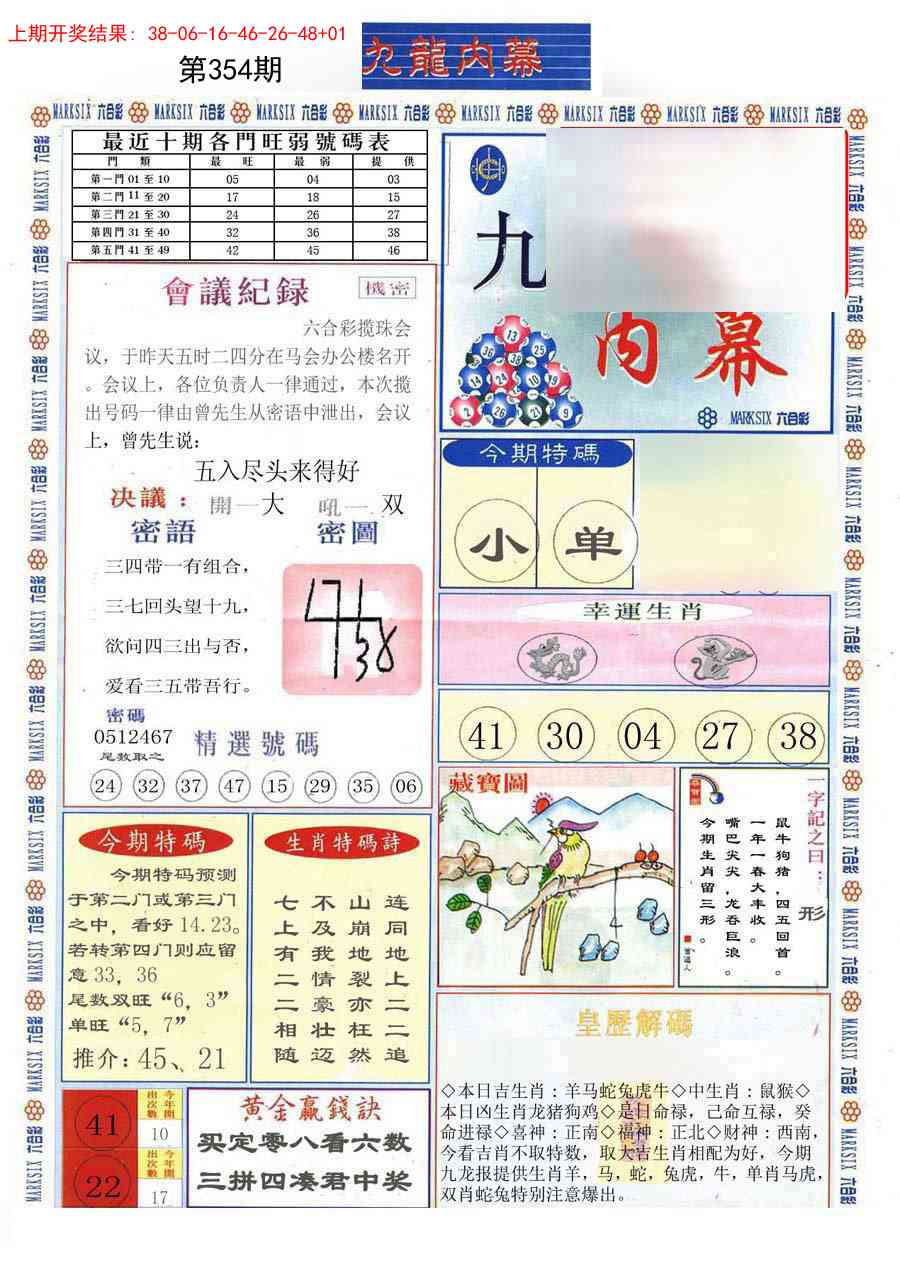 上期开奖结果: 38-06-16-46-26-48+01
第354期
九龍内幕
MARKSIX 六合彩
最近十期各門旺弱號碼表
門 類 最 旺 最 弱 提 供
第一門 01 至 10 05 04 03
第二門 11 至 20 17 18 15
第三門 21 至 30 24 26 27
第四門 31 至 40 32 36 38
第五門 41 至 49 42 45 46
會議紀録
機密
六合彩揽珠会
议，于昨天五时二四分在马会办公楼名开
。会议上，各位负责人一律通过，本次揽
出号码一律由曾先生从密语中泄出，会议
上，曾先生说：
五入尽头来得好
决議： 開一大 吼一 双
密語 密圖
三四带一有组合，
三七回头望十九，
欲问四三出与否，
爱看三五带吾行。
密碼
0512467
尾数取之
精選號碼
24 32 37 47 15 29 35 06
九
内幕
13
36 38 25
14 24 10 19
2 26 21 9
MARKSIX 六合彩
今期特碼
小 单
幸運生肖
41 30 04 27 38
藏寶圖
一字記之曰：形
鼠牛狗猪，四五回首。
一年一春大丰收。
嘴巴尖尖，龙吞巨浪。
今期生肖留三形。
今期特碼
今期特码预测
于第二门或第三门
之中，看好 14.23。
若转第四门则应留
意 33，36
尾数双旺“6，3”
单旺“5，7”
推介：45、21
生肖特碼詩
连同地上二二追
山崩地裂亦枉然
不及我情豪壮迈
七上有二二相随
41
今年開
出次數
10
22
今年開
出次數
17
黄金赢錢訣
买定零八看六数
三拼四凑君中奖
皇歷解碼
◇本日吉生肖：羊马蛇兔虎牛◇中生肖：鼠猴◇
本日凶生肖龙猪狗鸡◇是日命禄，己命互禄，癸
命进禄◇喜神：正南◇福神：正北◇财神：西南，
今看吉肖不取特数，取大吉生肖相配为好，今期
九龙报提供生肖羊，马，蛇，兔虎，牛，单肖马虎，
双肖蛇兔特别注意爆出。